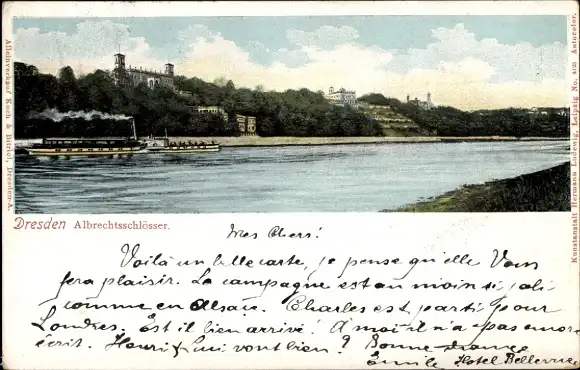 Alleinverkauf Koch & Bitriol, Dresden-A.
Kunstanstalt Hermann Ludewig Leipzig No. Autocolor.
Dresden Albrechtsschlösser.
Mes Chers!
Voilà un belle carte, je pense qu'elle Vous
fera plaisir. La campagne est au moin si joli
comme en Alsace. Charles est parti pour
Londres. Est il bien arrivé! A moi il n'a pas encore
écrit. Henri & Luci vont bien? Bonne
Emile Hotel Bellevue